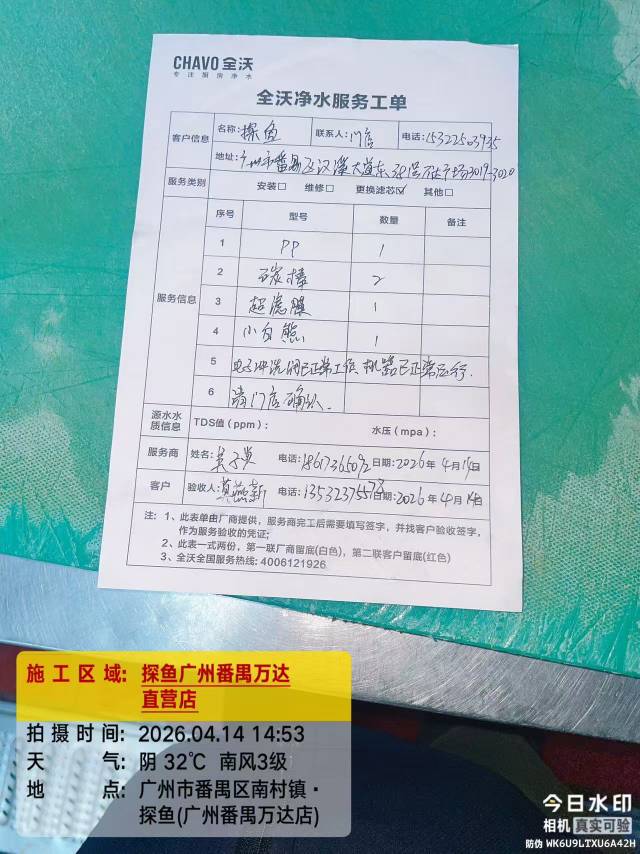 CHAVO 全沃
专注厨房净水
全沃净水服务工单
客户信息 名称: 探鱼 联系人: 门店 电话: 15322503935
地址: 广州市番禺区汉溪大道东 广场3019-3020
服务类别 安装□ 维修□ 更换滤芯☑ 其他□
服务信息 序号 型号 数量 备注
1 PP 1
2 碳棒 2
3 超滤膜 1
4 小白熊 1
5 电子冲洗阀已正常工作 机器已正常运行.
6 请门店确认.
源水水质信息 TDS值 (ppm): 水压 (mpa):
服务商 姓名: 电话: 18617365092 日期: 2026年4月14日
客户 验收人: 电话: 13532375573 日期: 2026年4月14日
注: 1、此表单由厂商提供，服务商完工后需要填写签字，并找客户验收签字，
作为服务验收的凭证;
2、此表一式两份，第一联厂商留底(白色)，第二联客户留底(红色)
3、全沃全国服务热线: 4006121926
施工区域: 探鱼广州番禺万达
直营店
拍摄时间: 2026.04.14 14:53
天气: 阴 32℃ 南风3级
地点: 广州市番禺区南村镇·
探鱼(广州番禺万达店)
今日水印
相机 真实可验
防伪 WK6U9LTXU6A42H